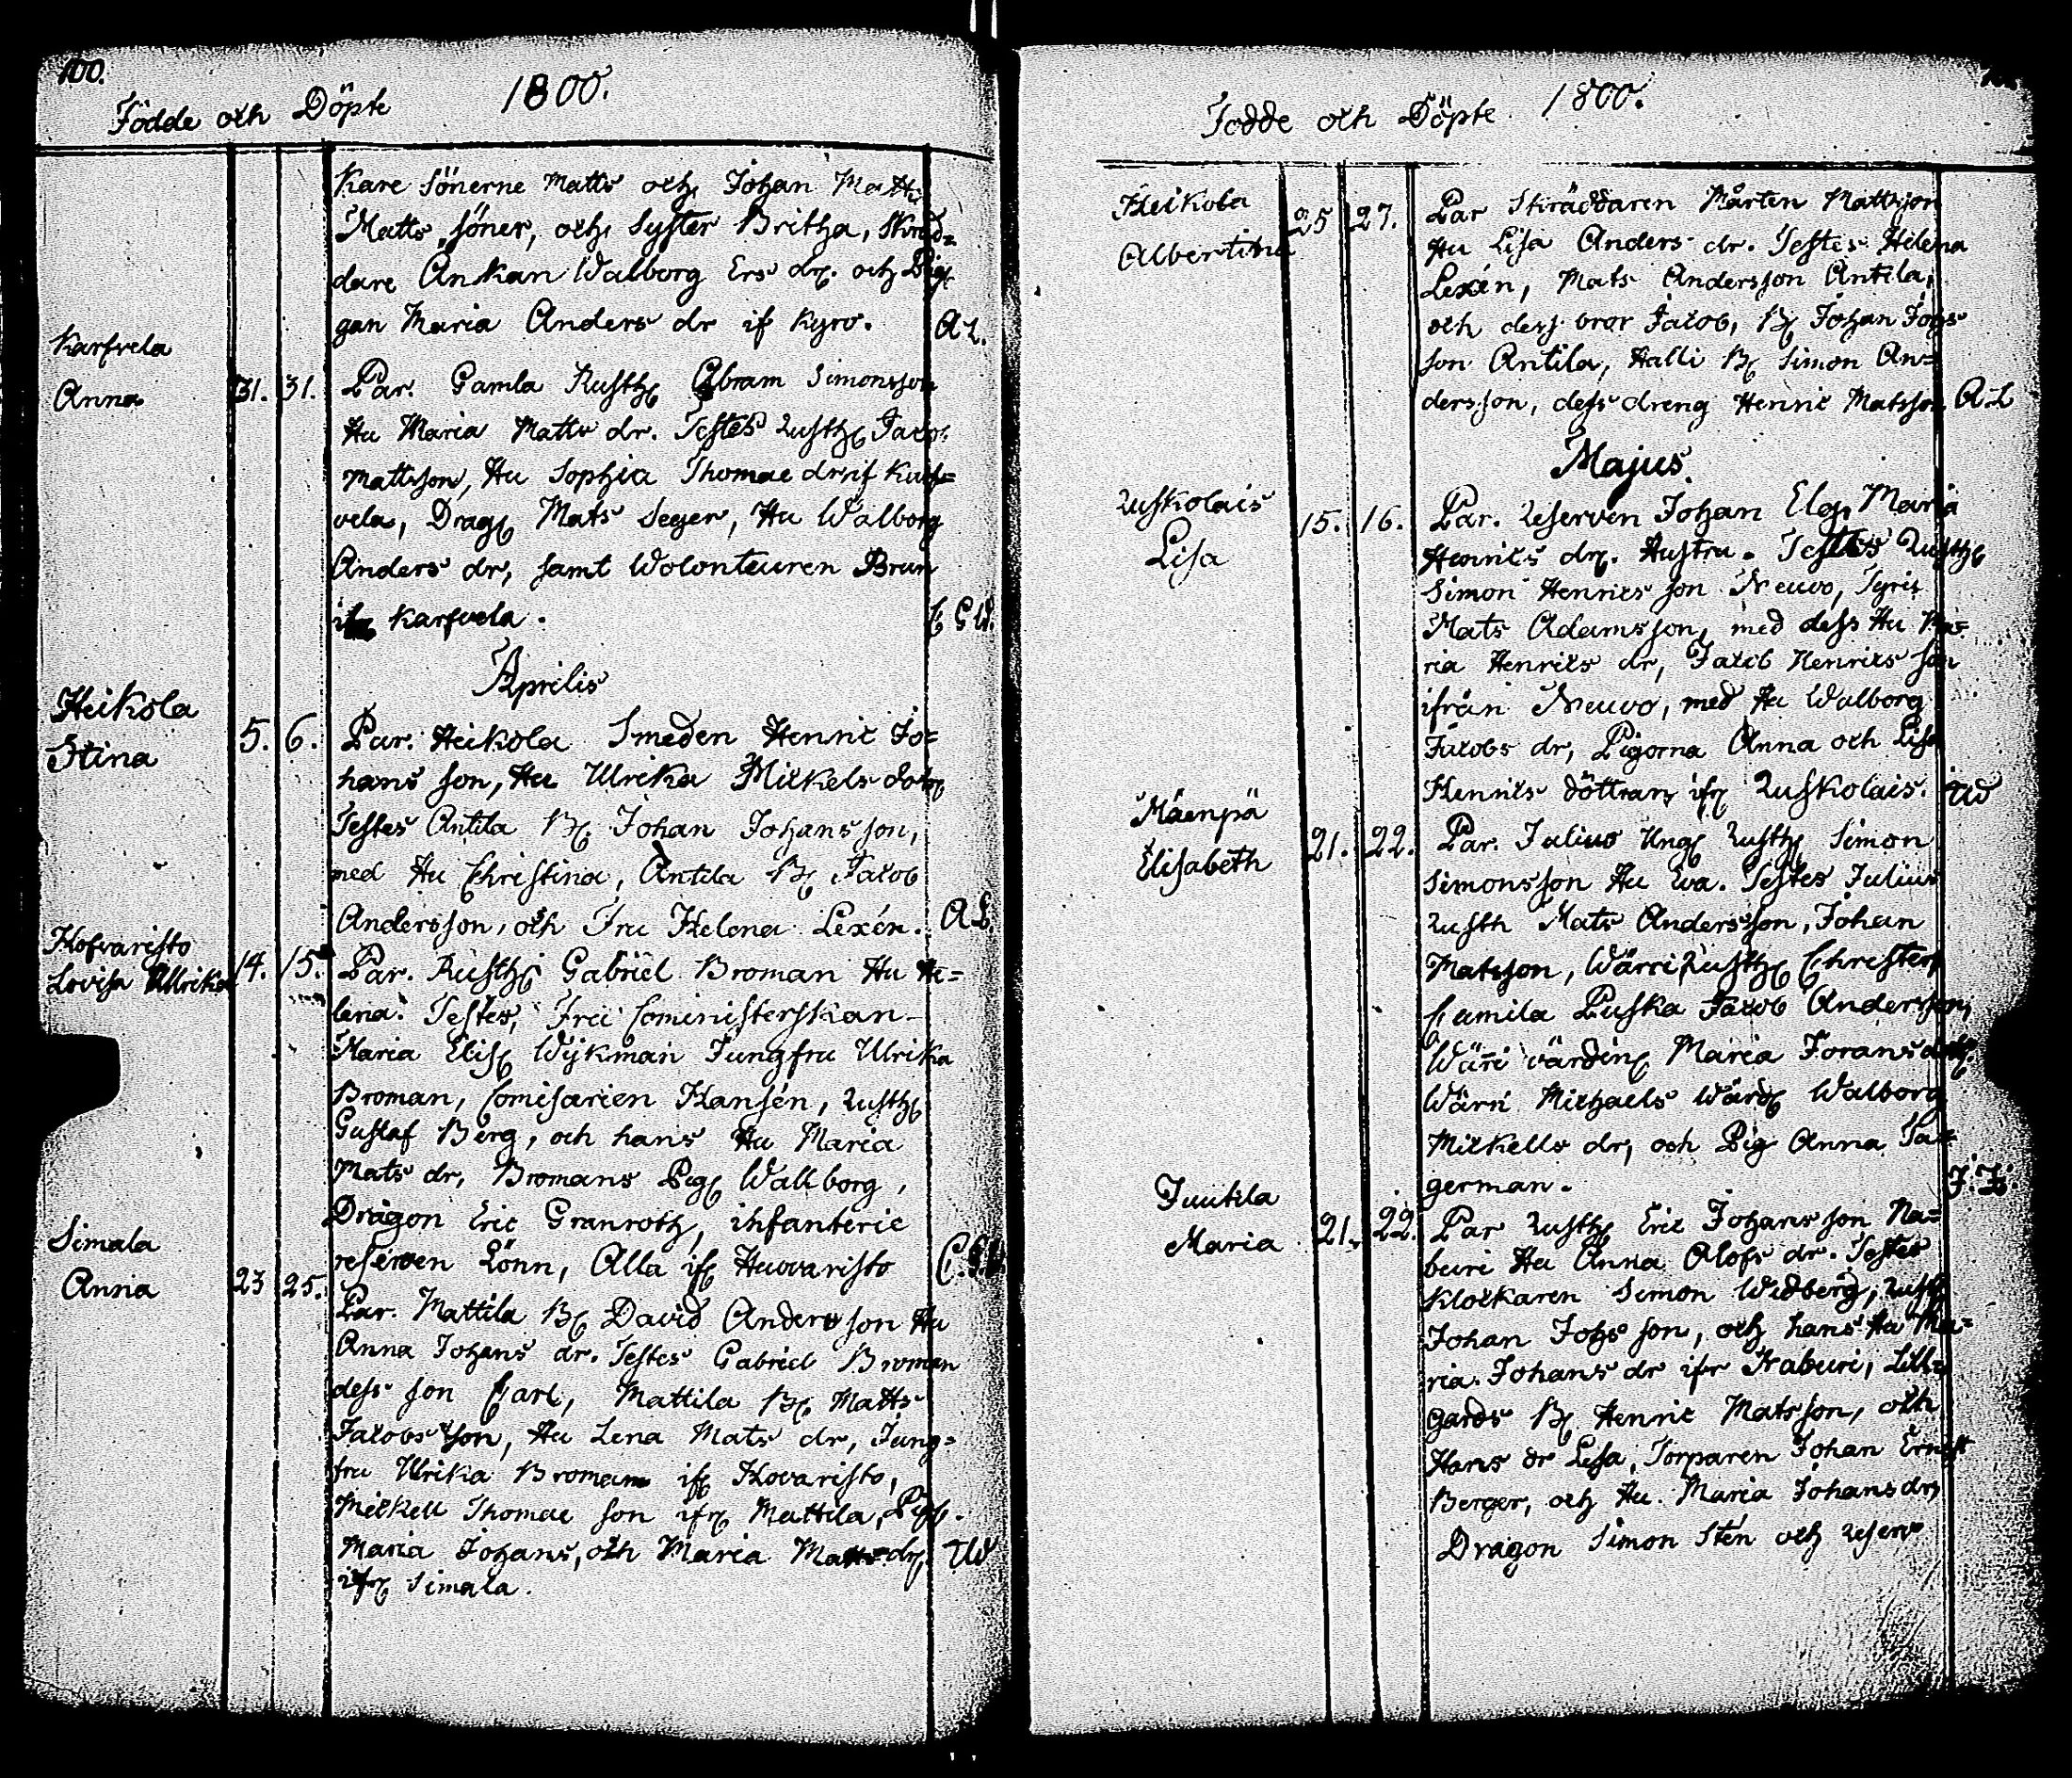 100.
Födde och Döpte 1800.
Kare Sönerne Matts och Johan Matts
Matts söner, och syster Britha, Skräd=
dare Änkan Walborg Ers dr. och Pig
gan Maria Anders dr if Kyro. A L.
Karfvela
Anna 31. 31. Par. Gamla Rusth Abram Simonsson
Hu Maria Matts dr. Testes Rusth Jacob
Mattsson, Hu Sophia Thomae dr if Karf=
vela, Drag Mats Seger, Hu Walborg
Anders dr, samt Wolonteuren Brun
ifr Karfvela. C G W.
Aprilis
Heikola
Stina 5. 6. Par. Heikola Smeden Henric Jo=
hans son, Hu Ulrika Mickels dotr
Testes Antila B. Johan Johansson,
med Hu Christina, Antila B. Jacob
Andersson, och Fru Helena Lexén. A L.
Hofvaristo
Lovisa Ullrika 14. 15. Par. Rusth Gabriel Broman Hu He=
lena. Testes, Fru Cominísterskan
Maria Elis Wijkman Jungfru Ulrika
Broman, Comisarien Hansén, Rusth
Gustaf Berg, och hans Hu Maria
Mats dr, Bromans Pig Wallborg,
Dragon Eric Granroth, infanterie
reserven Lönn, Alla if Huovaristo C.G.W.
Simala
Anna 23 25. Par. Mattila B. David Andersson Hu
Anna Johans dr. Testes Gabriel Broman
dess son Carl, Mattila B. Matts
Jacobs son, Hu Lena Mats dr, Jung=
fru Ulrika Broman if Hovaristo,
Mickell Thomae son ifr Mattila, Pig.
Maria Johans, och Maria Matts dr. TW
ifr Simala.
Fodde och Döpte 1800.
Heikola
Albertina 25 27. Par Skräddaren Mårten Mattsson
Hu Lisa Anders dr. Testes Helena
Lexén, Mats Andersson Antila,
och dess bror Jacob, B. Johan Johs
son Antila, Halli B. Simon An=
dersson, dess dreng Henric Matsson A L
Majus.
Ruskolais
Lisa 15. 16. Par. Reserven Johan Elg, Maria
Henrics dr. Hustru. Testes Rusth
Simon Henrics son Neuvo, Syris
Mats Adamsson, med dess Hu Ma=
ria Henrics dr, Jacob Henrics son
ifrån Neuvo, med Hu Walborg
Jacobs dr, Pigorna Anna och Lisa
Henrics döttrar ifr Ruskolais. TW
Mäenpä
Elisabeth 21. 22. Par. Julius Ung Rusth Simon
Simonsson Hu Eva. Testes Julius
Rusth Mats Andersson, Johan
Matsson, Wärri Rusth Christer
Gamla Puska Jacob Andersson,
Wärri värdin Maria Jorans dotr.
Wärri Michaels Wärd Walborg
Mickells dr, och Pig Anna Ta=
german. J. F.
Juutila
Maria 21. 22. Par Rusth Eric Johansson Na=
buri Hu Anna Alofs dr. Testes
Klockaren Simon Widberg, Rusth
Johan Johs son, och hans Hu Ma=
ria Johans dr ifr Naburi, Lill=
gards B. Henric Matsson, och
Hans dr Lisa, Torparen Johan Ernst
Berger, och Hu. Maria Johans dr,
Dragon Simon Sten och reserv